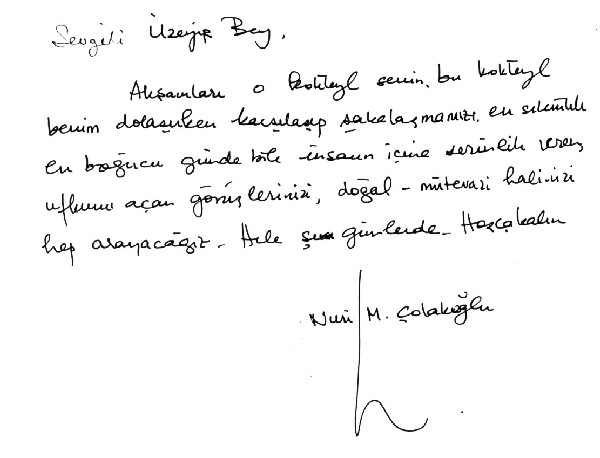 Sevgili Üzeyir Bey,
Akşamları o kokteyl senin, bu kokteyl
benim dolaşırken karşılaşıp şakalaşmamızı, en sıkıntılı
en boğucu günde bile insanın içine serinlik veren,
ufkunu açan görüşlerinizi, doğal - mütevazi halinizi
hep arayacağız. Hele şu günlerde. Hoşçakalın
Nuri M. Çolakoğlu